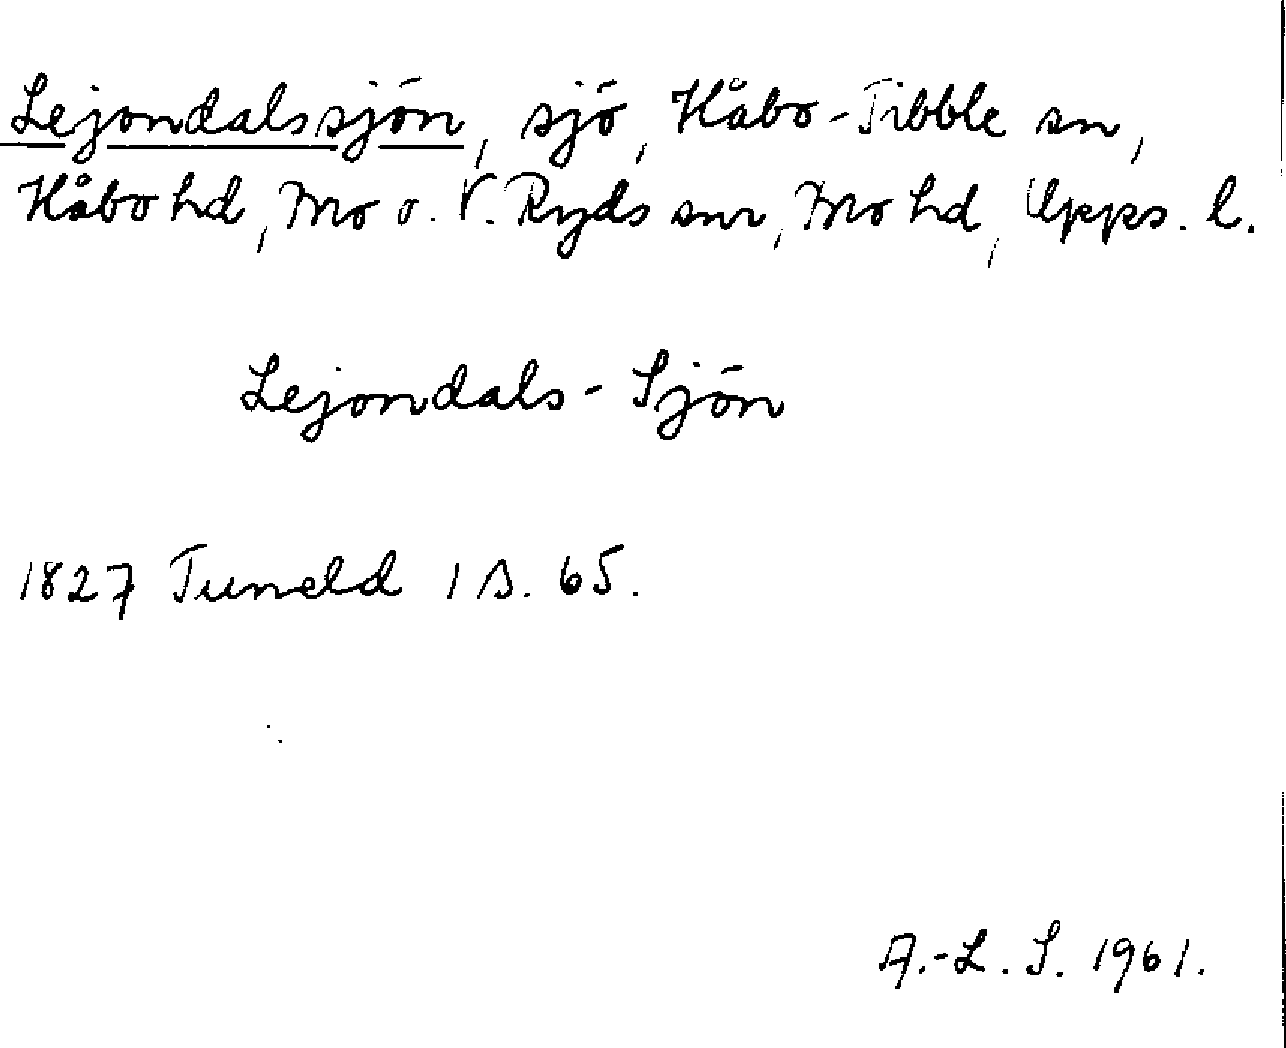 Lejondalssjön, sjö, Håbo-Tibble sn,
Håbo hd, Mo o. V. Ryds snr, Mo hd, Upps. l.
Lejondals-Sjön
1827 Tuneld 1 s. 65.
A.-L. S. 1961.